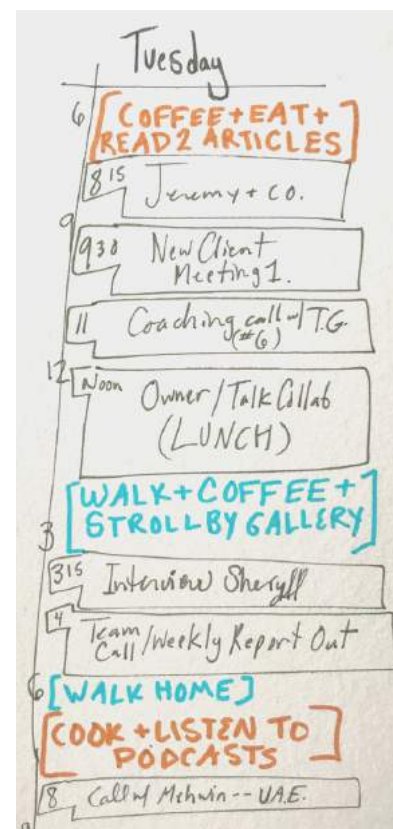 Tuesday
6
[COFFEE+EAT+
READ 2 ARTICLES]
8 15
Jeremy + co.
9
9 30
New Client
Meeting 1.
11
Coaching call w/ T.G.
(#6)
12
Noon
Owner/Talk Collab
(LUNCH)
[WALK+COFFEE+
STROLL BY GALLERY]
3
3 15
Interview Sheryll
4
Team
Call/Weekly Report Out
6
[WALK HOME]
[COOK + LISTEN TO
PODCASTS]
8
Call w/ Mehwin -- U.A.E.
9